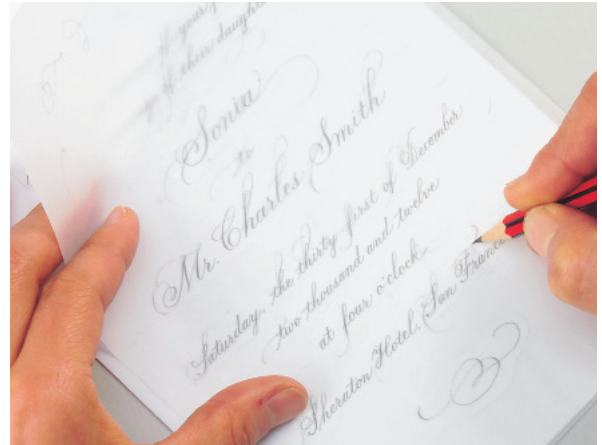 of your p
of their daughter
Sonia
to
Mr. Charles Smith
Saturday, the thirty-first of December
two thousand and twelve
at four o'clock
Sheraton Hotel, San Franc